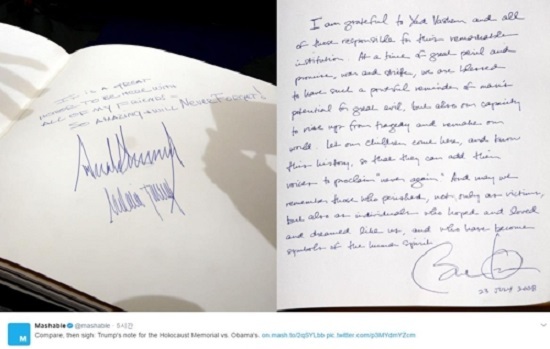 IT IS A GREAT
HONOR TO BE HERE WITH
ALL OF MY FRIENDS -
SO AMAZING & WILL NEVER FORGET!
I am grateful to Yad Vashem and all
of those responsible for this remarkable
institution. At a time of great peril and
promise, war and strife, we are blessed
to have such a powerful reminder of man's
potential for great evil, but also our capacity
to rise up from tragedy and remake our
world. Let our children come here, and know
this history, so that they can add their
voices to proclaim "never again." And may we
remember those who perished, not only as victims,
but also as individuals who hoped and loved
and dreamed like us, and who have become
symbols of the human spirit.
23 July 2008
Mashable @mashable · 5시간
Compare, then sigh: Trump's note for the Holocaust Memorial vs. Obama's.
M